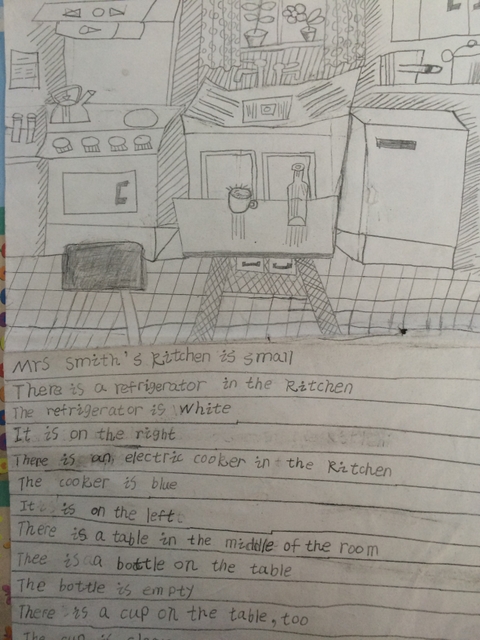 Mrs smith's Kitchen is small
There is a refrigerator in the Kitchen
The refrigerator is white
It is on the right
There is an electric cooker in the Kitchen
The cooker is blue
It is on the left
There is a table in the middle of the room
Thee is a bottle on the table
The bottle is empty
There is a cup on the table, too
The cup is